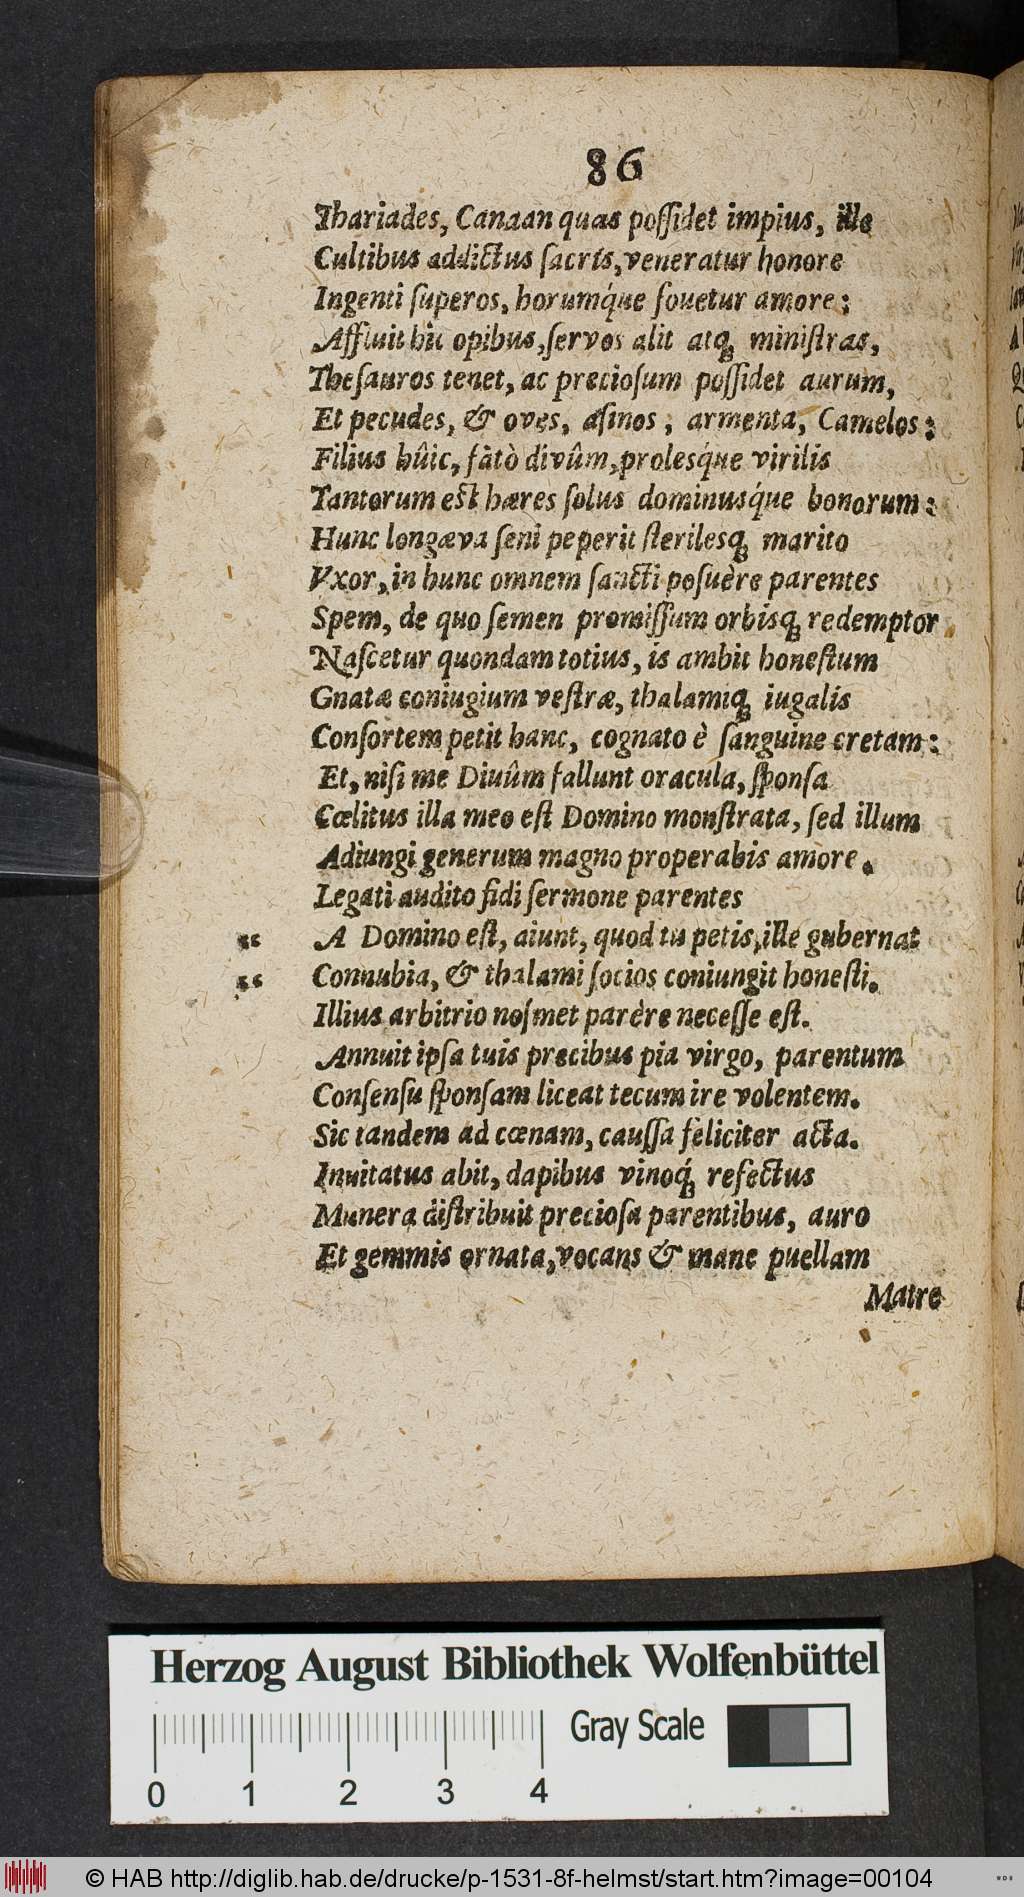 86
Thariades, Canaan quas poſſidet impius, ille
Cultibus addictus ſacris, veneratur honore
Ingenti ſuperos, horumq́ue fovetur amore:
Affluit hic opibus, ſervos alit atq; miniſtras,
Theſauros tenet, ac precioſum poſſidet aurum,
Et pecudes, & oves, aſinos, armenta, Camelos:
Filius hûic, fatò divûm, prolesq́ue virilis
Tantorum eſt hæres ſolus dominusq́ue bonorum:
Hunc longæva ſeni peperit ſterilesq; marito
Vxor, in hunc omnem ſancti poſuère parentes
Spem, de quo ſemen promiſſum orbisq; redemptor
Naſcetur quondam totius, is ambit honeſtum
Gnatæ coniugium veſtræ, thalamiq; iugalis
Conſortem petit hanc, cognato è ſanguine cretam:
Et, niſi me Diuûm fallunt oracula, ſponſa
Cœlitus illa meo eſt Domino monſtrata, ſed illum
Adiungi generum magno properabis amore.
Legati audito fidi ſermone parentes
“ A Domino eſt, aiunt, quod tu petis, ille gubernat
“ Connubia, & thalami ſocios coniungit honeſti.
Illius arbitrio noſmet parère neceſſe eſt.
Annuit ipſa tuis precibus pia virgo, parentum
Conſenſu ſponſam liceat tecum ire volentem.
Sic tandem ad cœnam, cauſſa feliciter acta.
Inuitatus abit, dapibus vinoq́; refectus
Munera diſtribuit precioſa parentibus, auro
Et gemmis ornata, vocans & mane puellam
Matre
Herzog August Bibliothek Wolfenbüttel
Gray Scale
0 1 2 3 4
© HAB http://diglib.hab.de/drucke/p-1531-8f-helmst/start.htm?image=00104